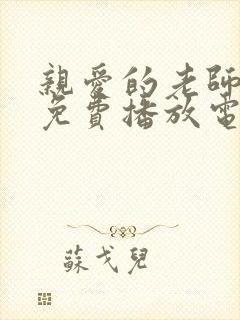 親愛的老師
免費播放電
蘇戈兒